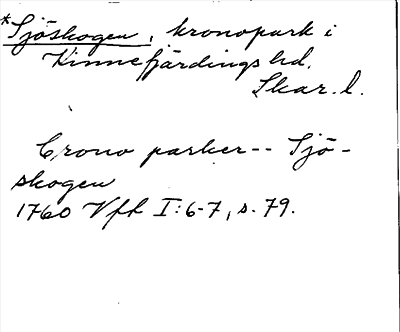 *Sjöskogen, kronopark i
Kinnefjärdings hd.
Skar. l.
Crono parker-- Sjö-
skogen
1760 Vfh I:6-7, s. 79.